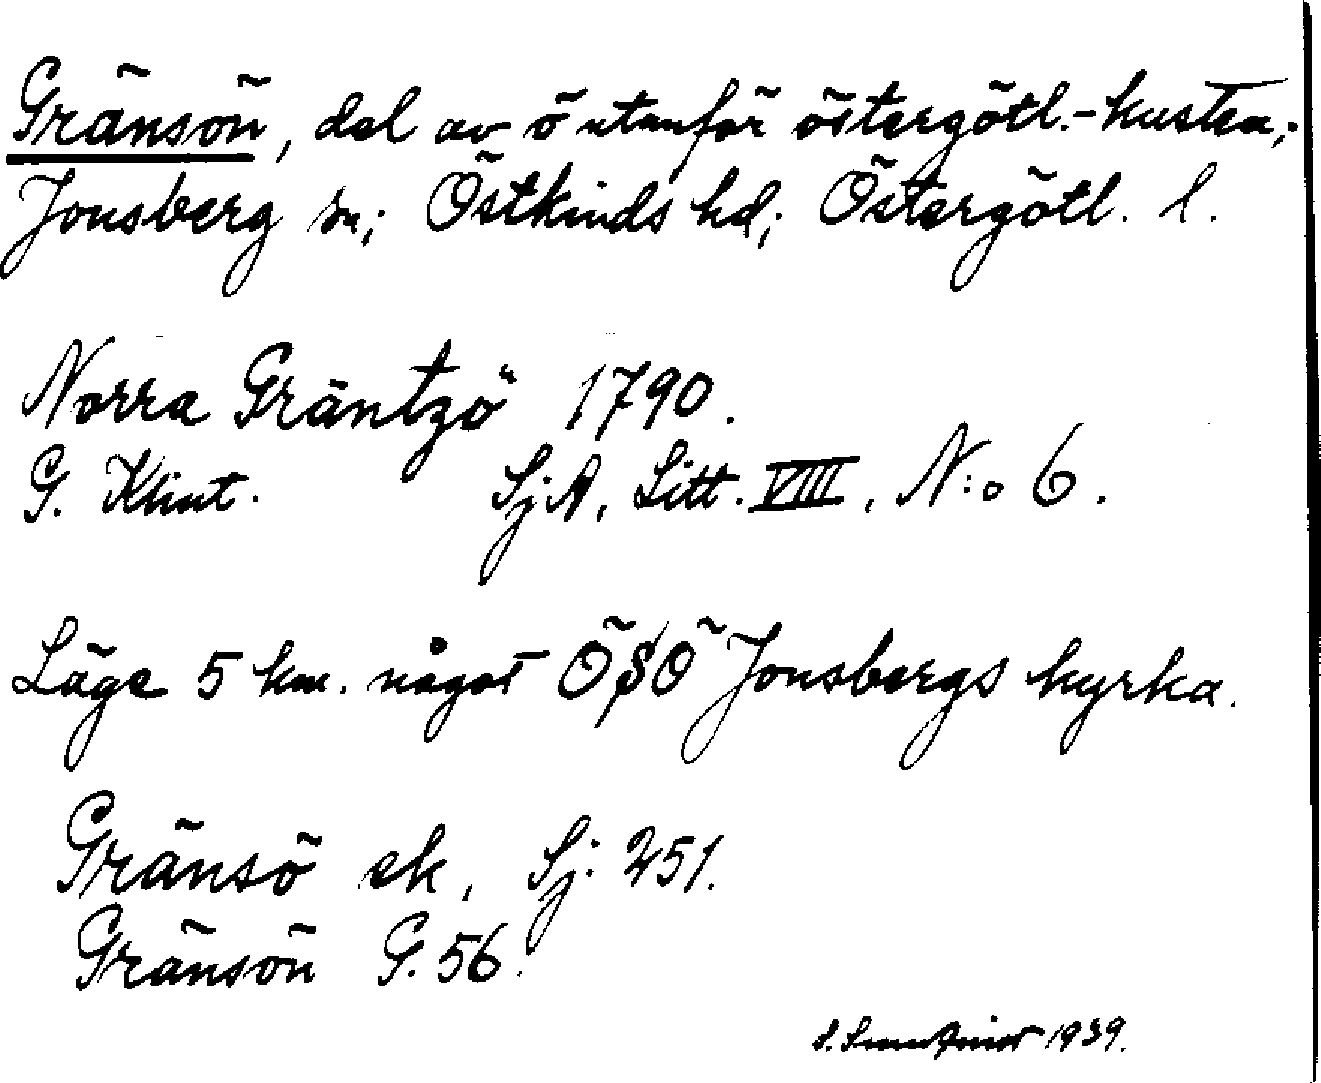 Gränsön, del av ö utanför östergötl.-kusten;
Jonsberg sn; Östkinds hd; Östergötl. l.
Norra Gräntzö 1790.
G. Klint. SjA, Litt. VIII, N:o 6.
Läge 5 km. något ÖSÖ Jonsbergs kyrka.
Gränsö ek, Sj. 251.
Gränsön G. 56.
1939.